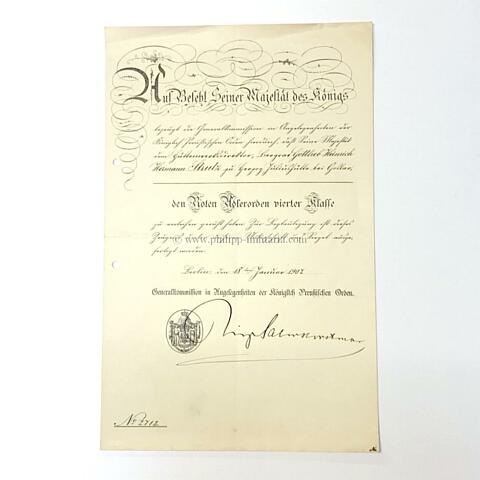 Auf Befehl Seiner Majestät des Königs
bezeugt die Generalkommission in Angelegenheiten der
Königlich Preußischen Orden hierdurch, daß Seine Majestät
dem Hüttenwerksdirektor, Bergrat Gottlieb Heinrich
Hermann zu Herzog Juliushütte bei Goslar,
den Rothen Adlerorden vierter Klasse
zu verleihen geruht haben. Zur Beglaubigung ist dieses
Zeugnis unter Siegel ausge-
fertigt worden.
www.philipp-militaria.com
Berlin, den 18ten Januar 1907
Generalkommission in Angelegenheiten der Königlich Preußischen Orden.
No 2712